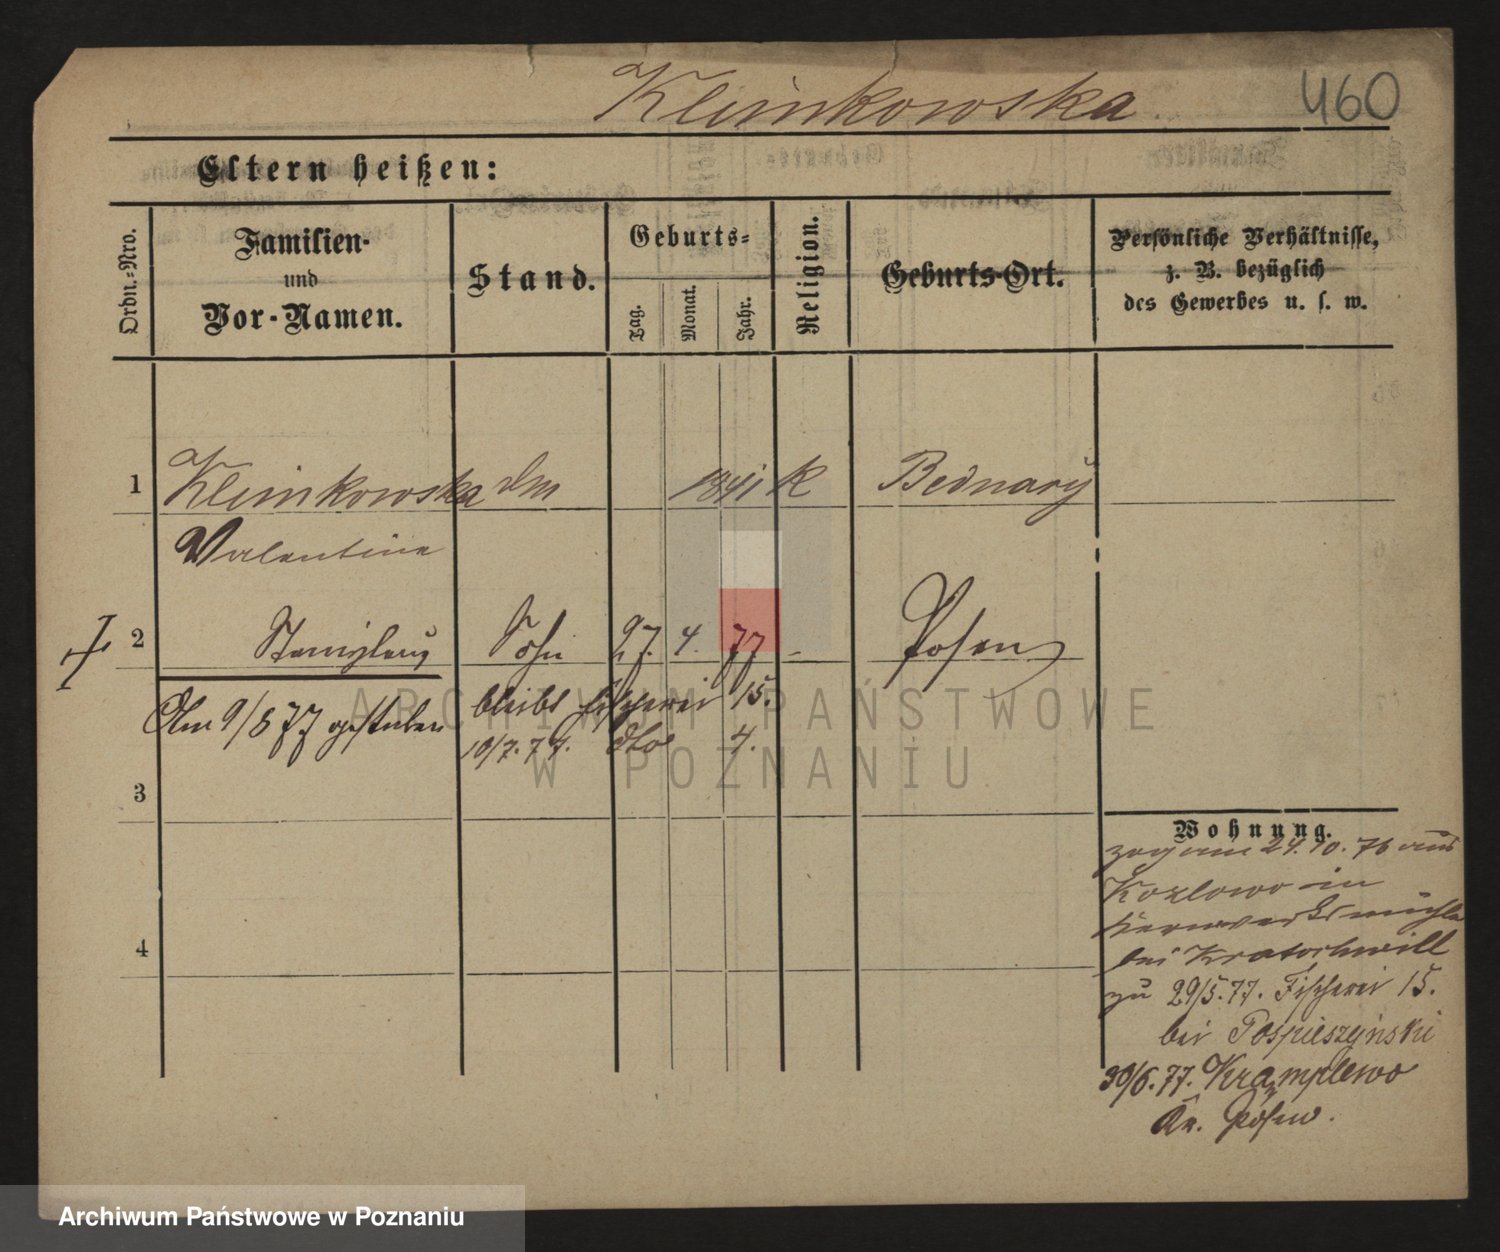 Klimkowska
460
Eltern heißen:
Ordn.=Nro.
Familien-
und
Vor-Namen.
Stand.
Geburts=
Tag.
Monat.
Jahr.
Religion.
Geburts-Ort.
Persönliche Verhältnisse,
z. B. bezüglich
des Gewerbes u. s. w.
1 Klimkowska 1841 K Bednary
Valentine
2 Stanislaus Sohn 27. 4. 77 - Posen
Am 9/8 77 gestorben
bleibt Fischerei 15.
10/7. 77. dto 4.
3
4
Wohnung.
zog am 24. 10. 76 aus
Kozlowo in
Kernwerksmühle
bei Kratochwill
zu 29/5. 77. Fischerei 15.
bei Pospieszynski
30/6. 77. Kramplewo
Kr. Posen.
ARCHIWUM PAŃSTWOWE
W POZNANIU
Archiwum Państwowe w Poznaniu